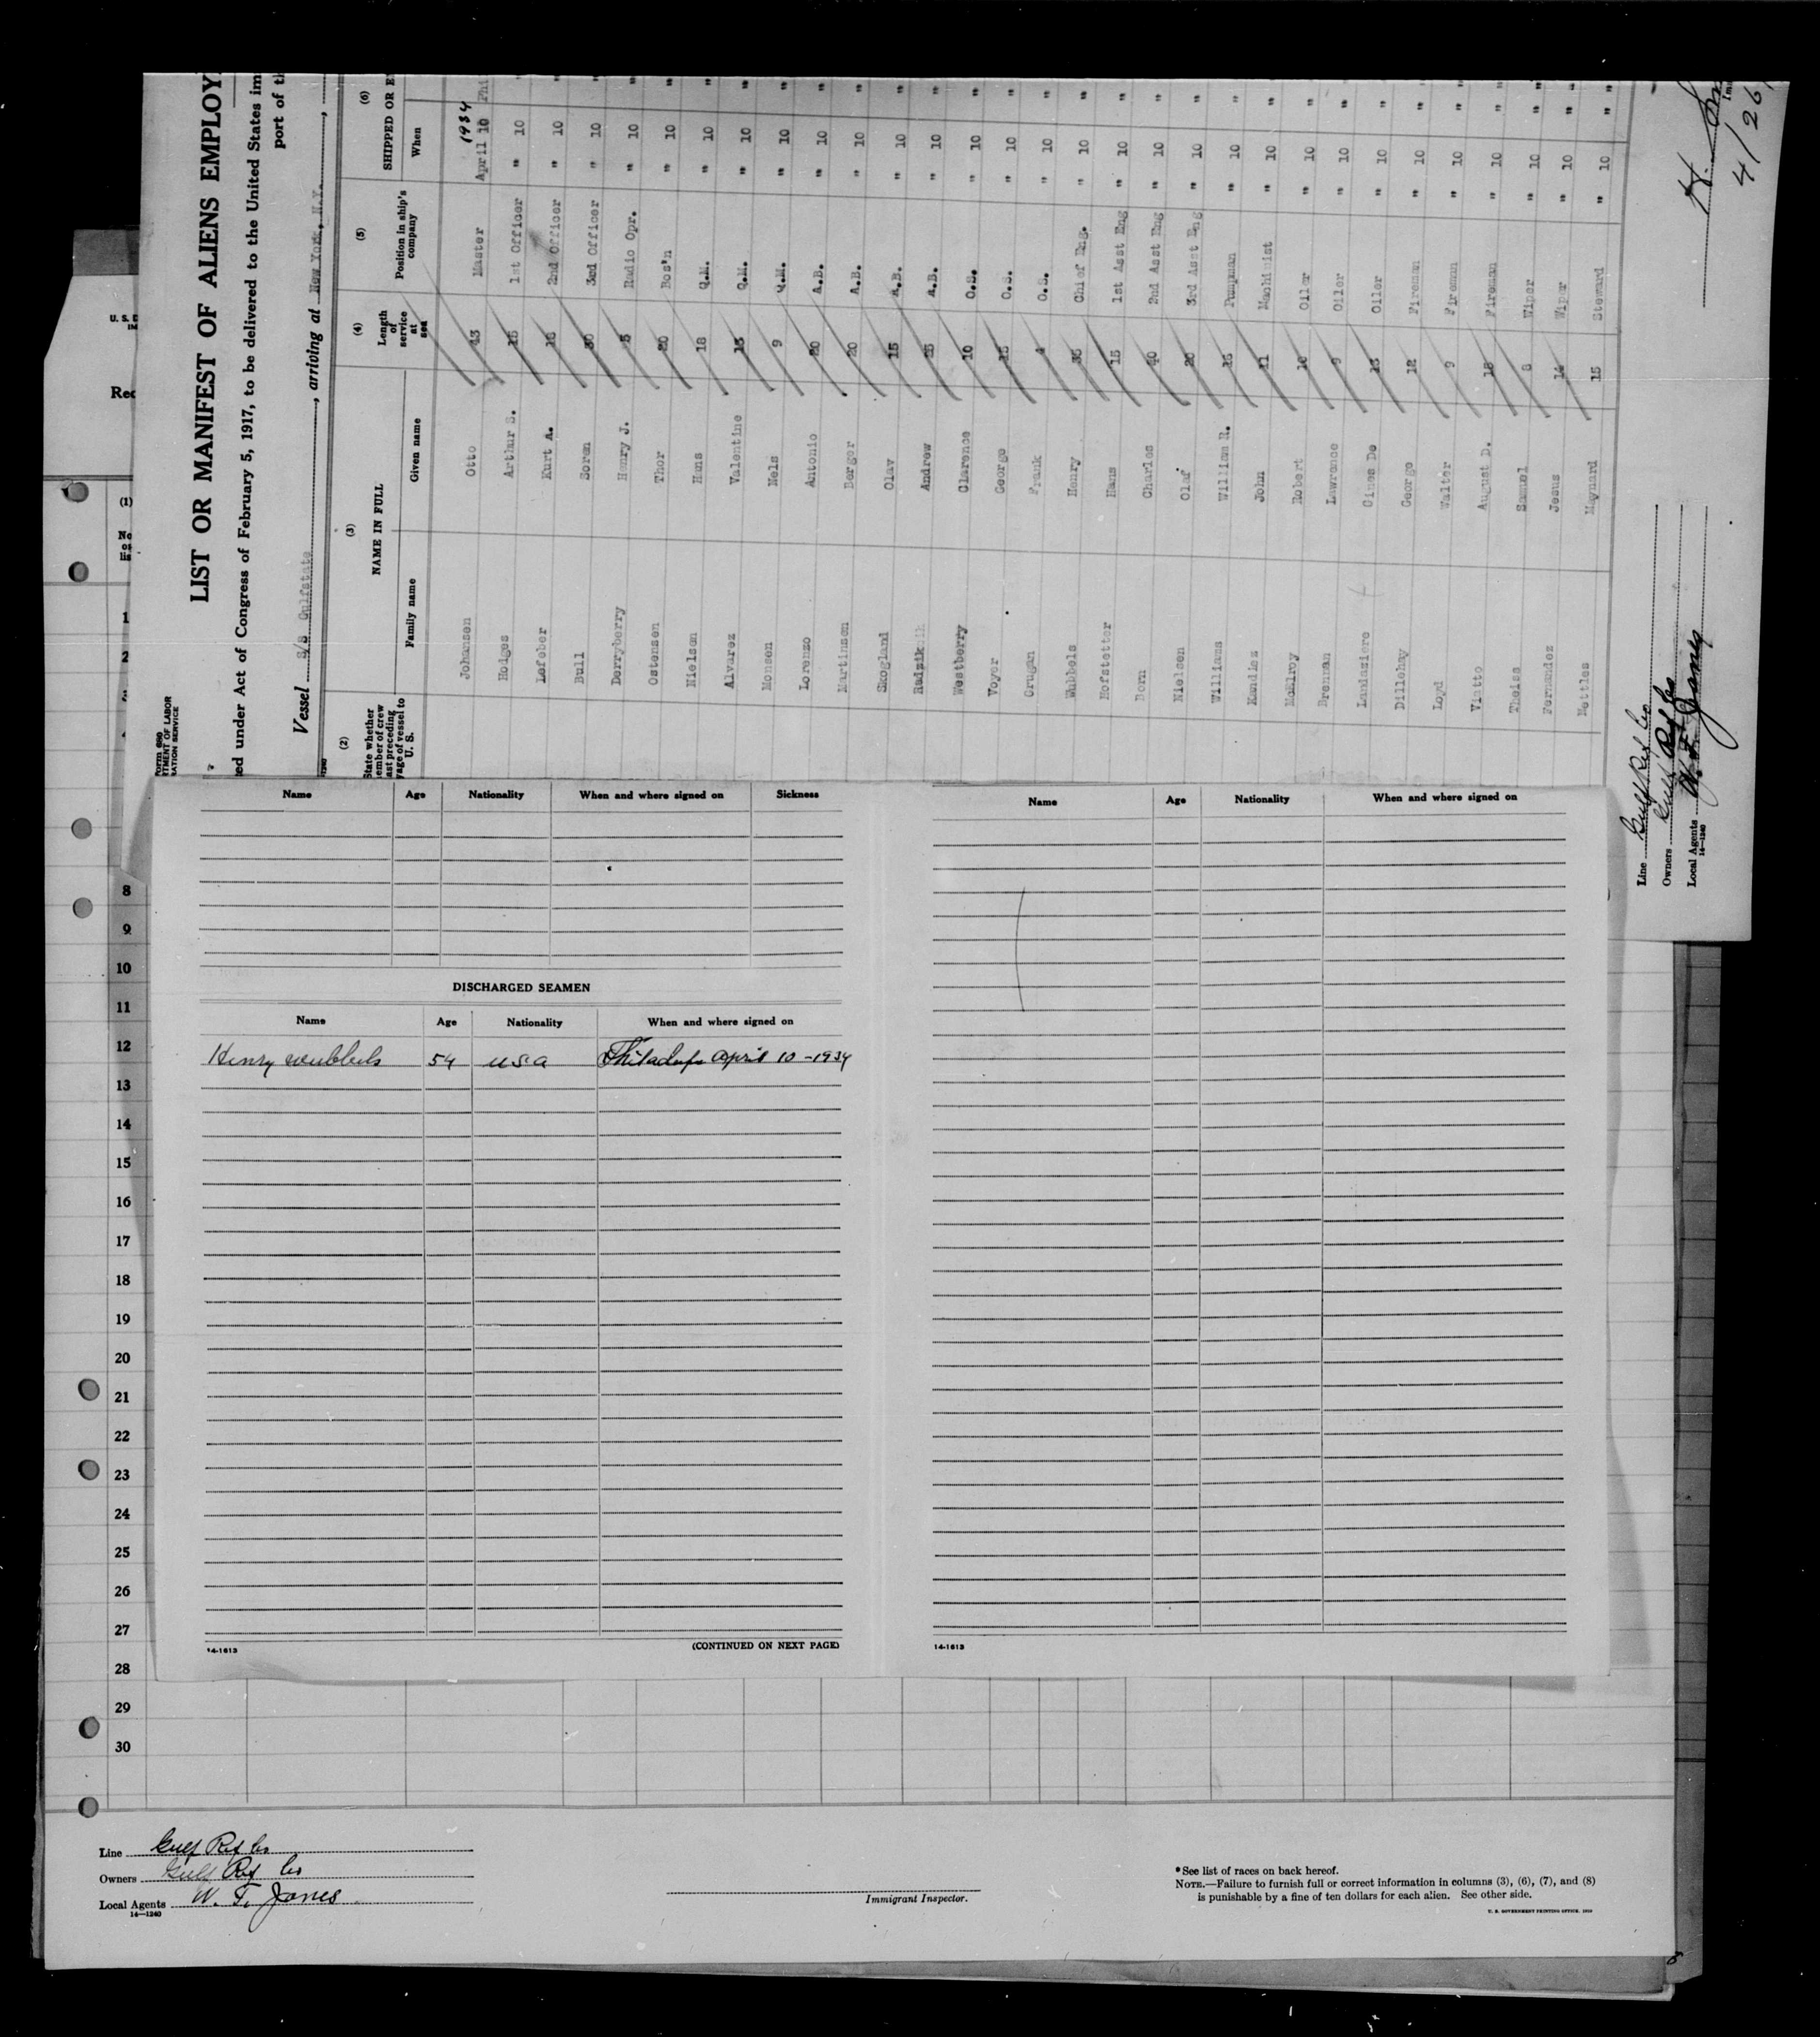 LIST OR MANIFEST OF ALIENS EMPLOY
ed under Act of Congress of February 5, 1917, to be delivered to the United States im
port of th
Vessel S/S Gulfstate, arriving at New York, N.Y.,
(2) (3) (4) (5) (6)
State whether
member of crew
last preceding
voyage of vessel to
U. S.
NAME IN FULL
Family name Given name
Length
of
service
at
sea
Position in ship's
company
SHIPPED OR E
When
1934
Johansen Otto 43 Master April 10 Phi
Hodges Arthur S. 15 1st Officer " 10 "
Lefeber Kurt A. 16 2nd Officer " 10 "
Bull Soren 30 3rd Officer " 10 "
Derryberry Henry J. 5 Radio Opr. " 10 "
Ostensen Thor 20 Bos'n " 10 "
Nielsen Hans 18 Q.M. " 10 "
Alvarez Valentine 15 Q.M. " 10 "
Monsen Nels 9 Q.M. " 10 "
Lorenzo Antonio 20 A.B. " 10 "
Martinsen Berger 20 A.B. " 10 "
Skogland Olav 15 A.B. " 10 "
Andrew A.B. " 10 "
Westberry Clarence 10 O.S. " 10 "
Voyer George O.S. " 10 "
Crugan Frank 4 O.S. " 10 "
Wubbels Henry 35 Chief Eng. " 10 "
Hofstetter Hans 15 1st Asst Eng " 10 "
Born Charles 40 2nd Asst Eng " 10 "
Nielsen Olaf 20 3rd Asst Eng " 10 "
Williams William R. Pumpman " 10 "
Mendez John 11 Machinist " 10 "
McElroy Robert 10 Oiler " 10 "
Brennan Lawrence 9 Oiler " 10 "
Landaziere Gines De 13 Oiler " 10 "
Dillehay George 12 Fireman " 10 "
Loyd Walter 9 Fireman " 10 "
Viatto August D. 18 Fireman " 10 "
Theiss Samuel 8 Wiper " 10 "
Fernandez Jesus 14 Wiper " 10 "
Nettles Maynard 15 Steward " 10 "
4/26
Line Gulf Ref Co
Owners Gulf Ref Co
Local Agents W. T. Jones
14—1240
Name Age Nationality When and where signed on Sickness
DISCHARGED SEAMEN
Name Age Nationality When and where signed on
Henry Wubbels 54 U.S.A Philadelp April 10 -1934
14-1613
(CONTINUED ON NEXT PAGE)
Name Age Nationality When and where signed on
14-1613
(1)
1
2
8
9
10
11
12
13
14
15
16
17
18
19
20
21
22
23
24
25
26
27
28
29
30
Line Gulf Ref Co
Owners Gulf Ref Co
Local Agents W. T. Jones
14—1240
Immigrant Inspector.
*See list of races on back hereof.
NOTE.—Failure to furnish full or correct information in columns (3), (6), (7), and (8)
is punishable by a fine of ten dollars for each alien. See other side.
U. S. GOVERNMENT PRINTING OFFICE